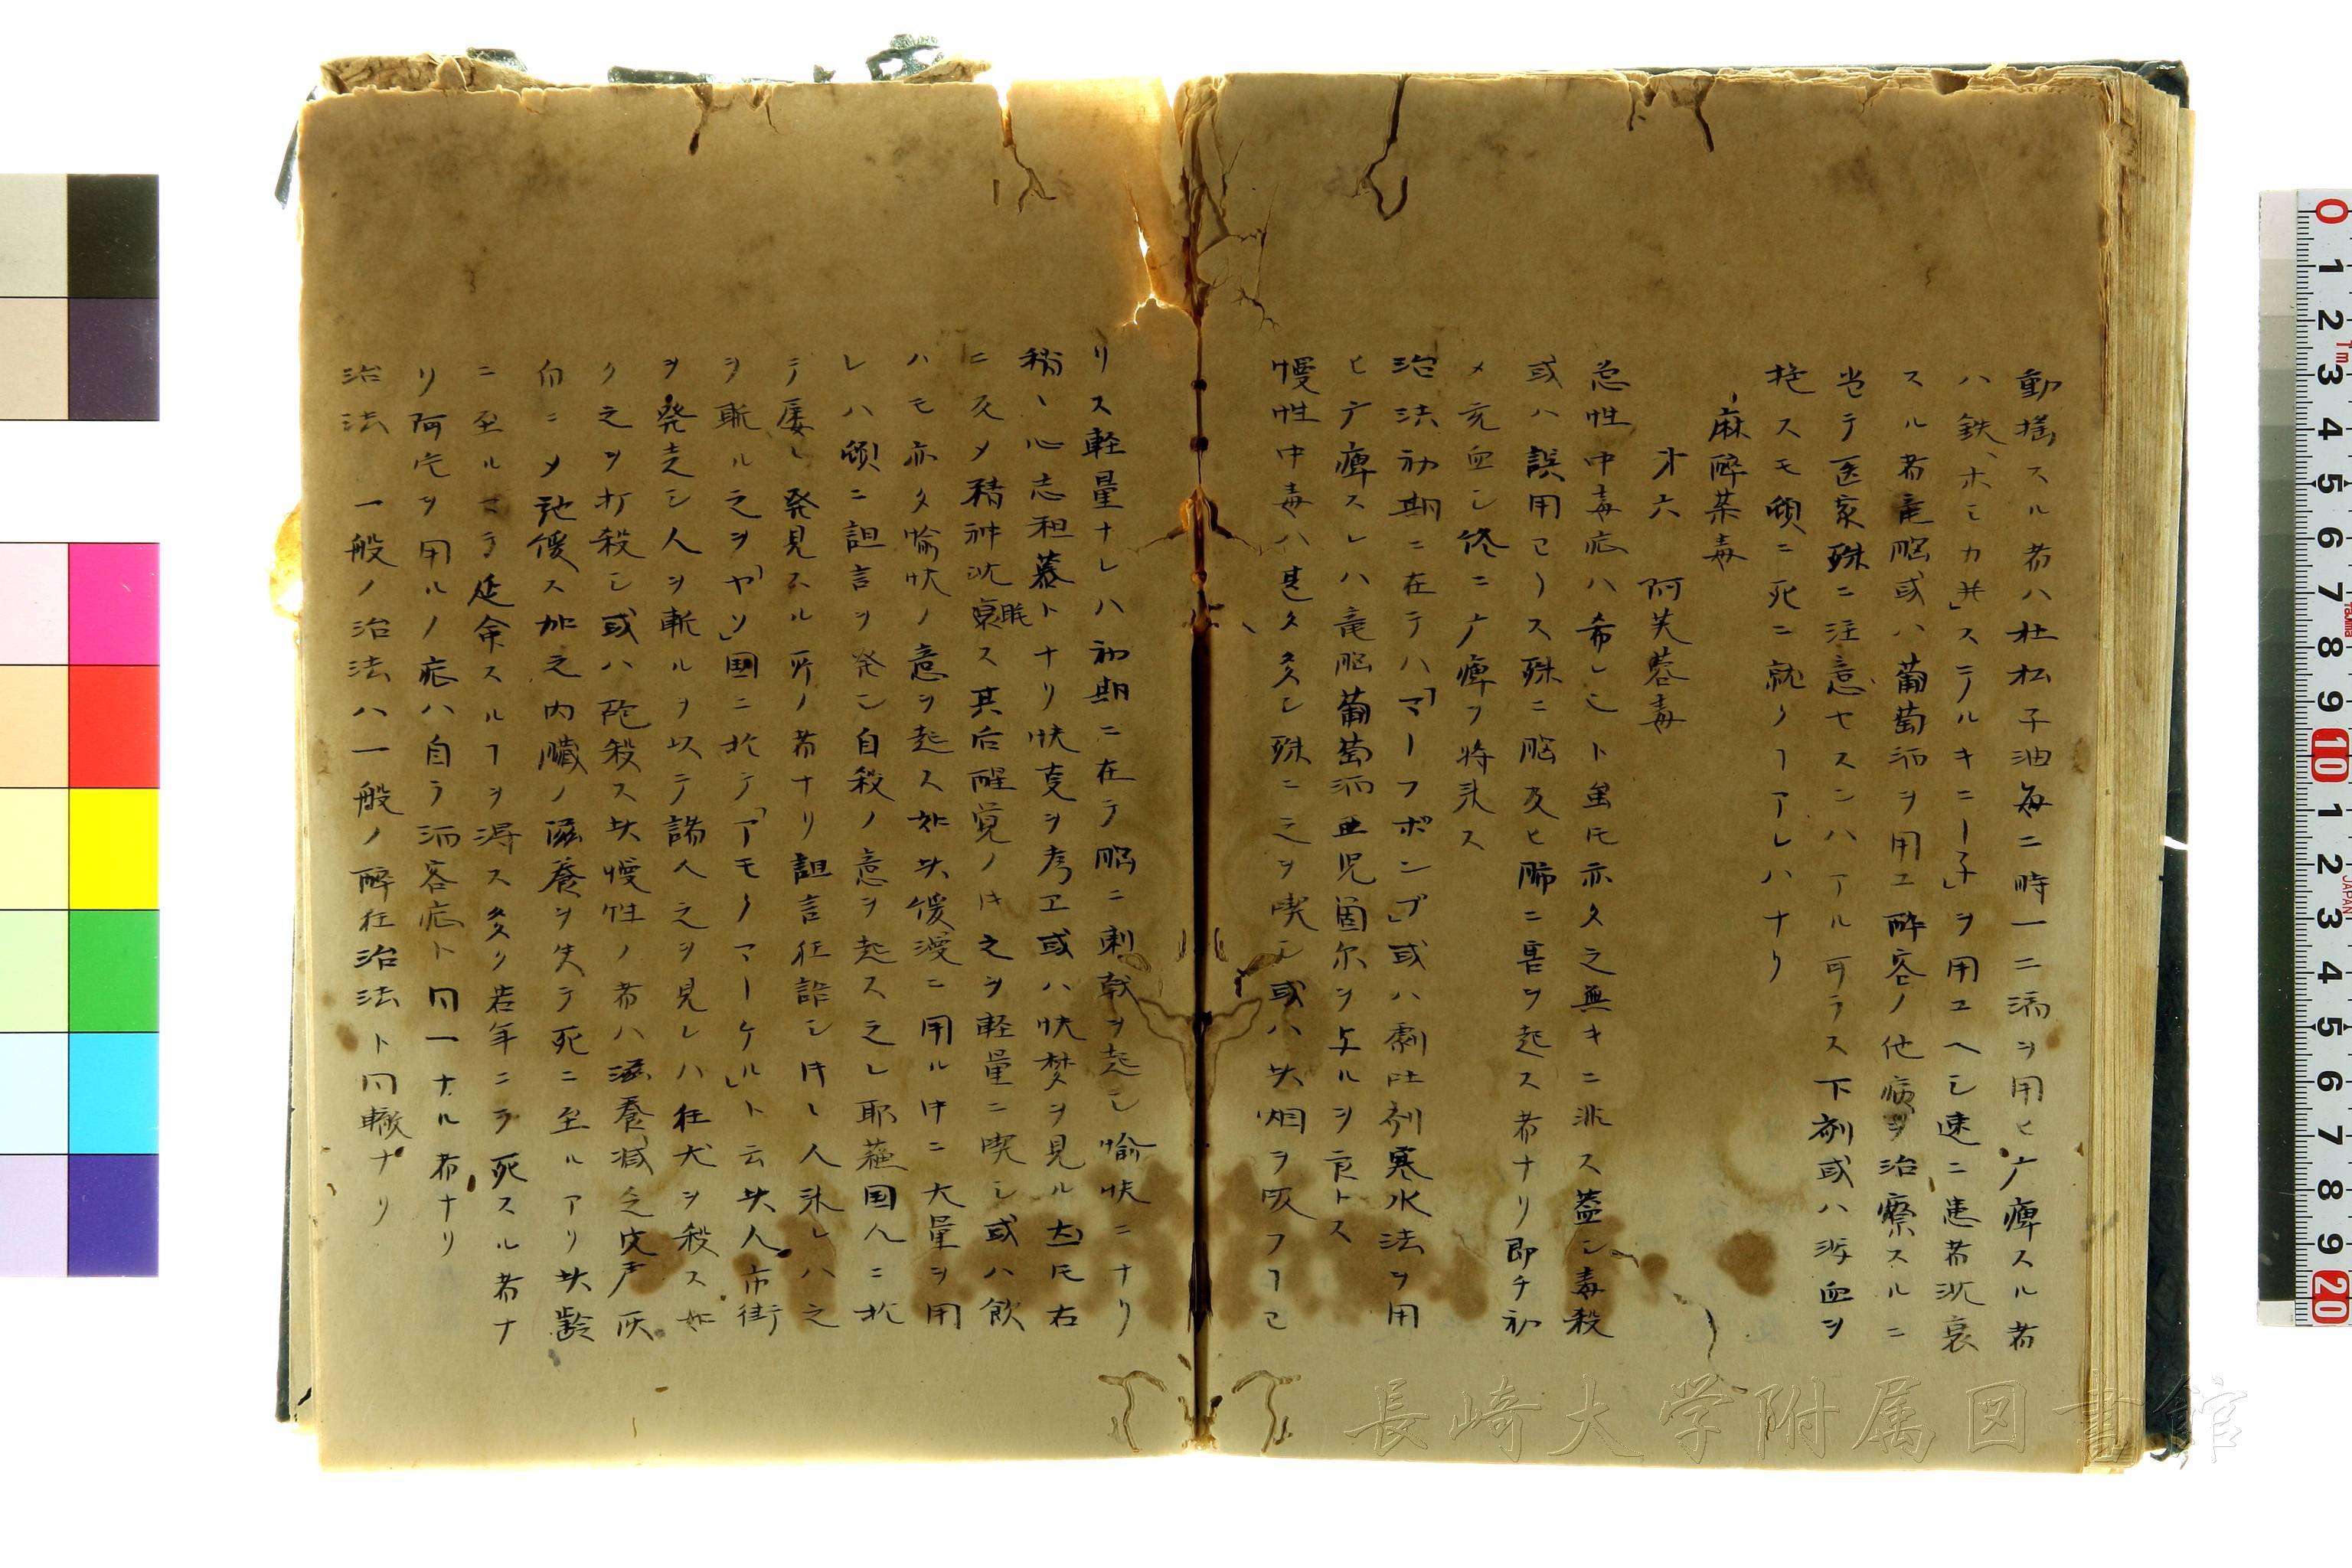 動揺スル者ハ杜松子油毎二時一二滴ヲ用ヒ广痺スル者
ハ鉄、ホミカ丼」ステルキニー子」ヲ用ユヘシ速ニ患者沈衰
スル者竜脳或ハ葡萄酒ヲ用ユ酔客ノ他病ヲ治療スルニ
当テ医家殊ニ注意セスンハアル可ラス下剤或ハ瀉血ヲ
施スモ頓ニ死ニ就クヿアレハナリ
麻酔薬毒
才六 阿芙蓉毒
急性中毒症ハ希レニト雖𪜈亦タ之無キニ非ス蓋シ毒殺
或ハ誤用ヨリス殊ニ脳及ヒ肺ニ害ヲ起ス者ナリ即チ初
メ充血シ終ニ广痺ヲ将来ス
治法初期ニ在テハ「マーフポンプ」或ハ劇吐剤寒水法ヲ用
ヒ广痺スレハ竜脳葡萄酒亜児箇尓ヲ与ルヲ良トス
慢性中毒ハ甚タ多シ殊ニ之ヲ喫シ或ハ其烟ヲ吸フヿヨ
リス軽量ナレハ初期ニ在テ脳ニ刺戟ヲ起シ愉快ニナリ
稍ヽ心志粗暴トナリ快支ヲ考エ或ハ快梦ヲ見ル𪜈右
ニ反メ精神沈衰眠ス其后醒覚ノ时之ヲ軽量ニ喫シ或ハ飲
ハモ亦タ愉快ノ意ヲ起ス如其優漫ニ用ル时ニ大量ヲ用
レハ頓ニ詛言ヲ発シ自殺ノ意ヲ起ス之レ耶蘓国人ニ於
テ屡レ発見スル所ノ者ナリ詛言狂譫シ时レ人来レハ之
ヲ斬ル之ヲ「ヤソ」国ニ於テ「アモクマーケル」ト云其人市街
ヲ発走シ人ヲ斬ルヲ以テ諸人之ヲ見レハ狂犬ヲ殺ス如
ク之ヲ打殺シ或ハ砲殺ス其慢性ノ者ハ滋養減乏皮膚灰
白ニメ弛緩ス加之内臓ノ滋養ヲ失テ死ニ至ルアリ其齢
ニ至ルマテ延命スルヿヲ得ス多ク若年ニテ死スル者ナ
リ阿片ヲ用ルノ症ハ自ラ酒客症ト同一ナル者ナリ
治法 一般ノ治法ハ一般ノ酔狂治法ト同轍ナリ